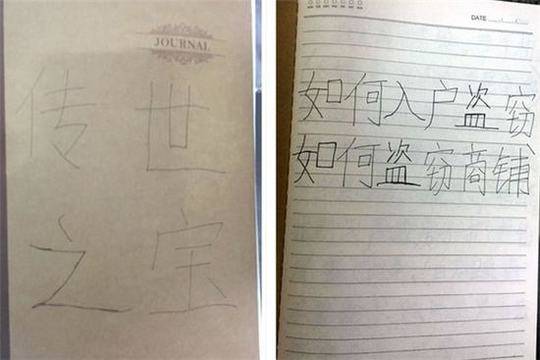 JOURNAL
传世
之宝
DATE
如何入户盗窃
如何盗窃商铺